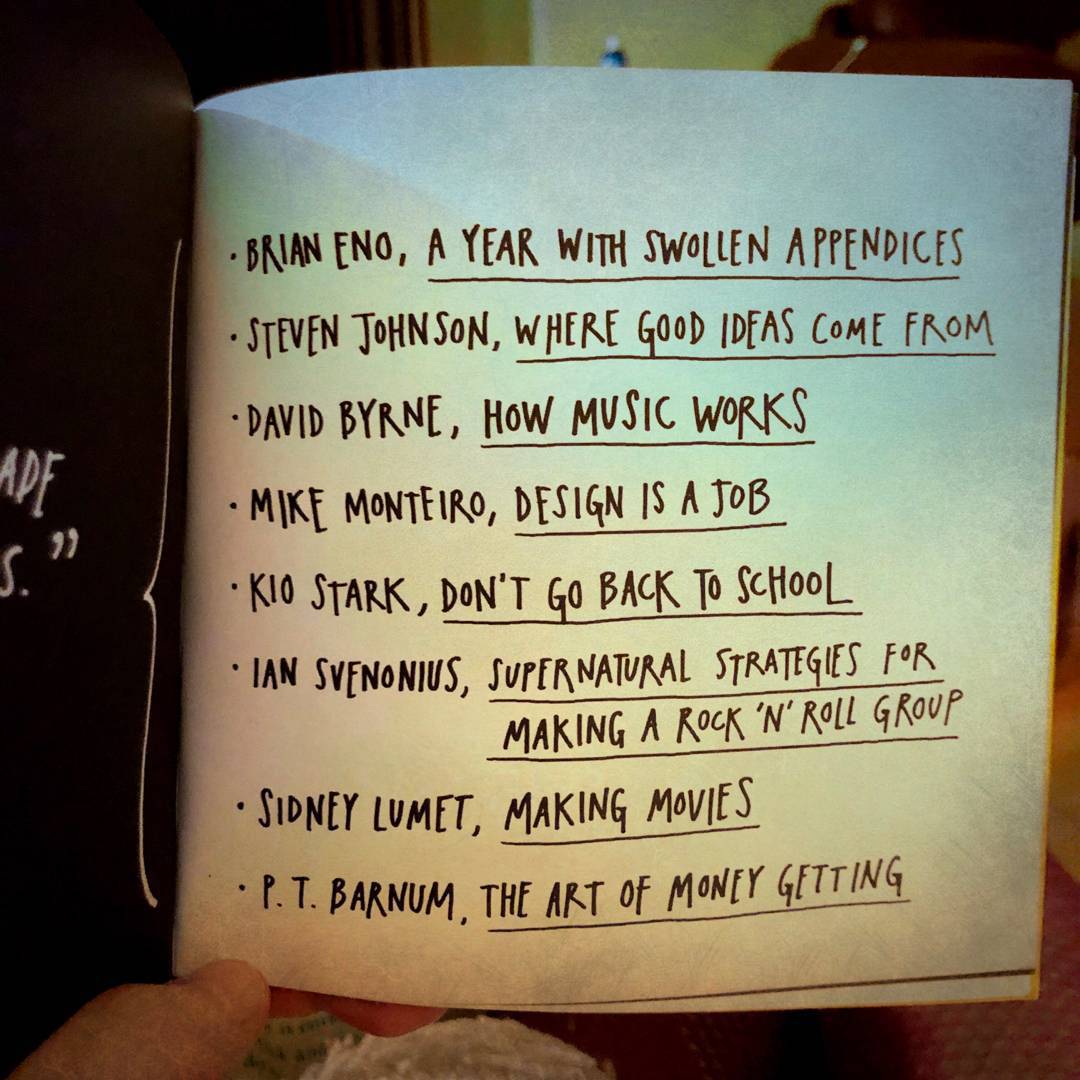 ADE
S.”
· BRIAN ENO, A YEAR WITH SWOLLEN APPENDICES
· STEVEN JOHNSON, WHERE GOOD IDEAS COME FROM
· DAVID BYRNE, HOW MUSIC WORKS
· MIKE MONTEIRO, DESIGN IS A JOB
· KIO STARK, DON'T GO BACK TO SCHOOL
· IAN SVENONIUS, SUPERNATURAL STRATEGIES FOR
MAKING A ROCK 'N' ROLL GROUP
· SIDNEY LUMET, MAKING MOVIES
· P. T. BARNUM, THE ART OF MONEY GETTING